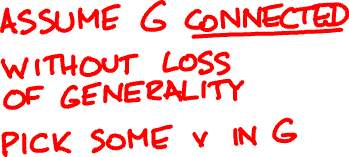 ASSUME G CONNECTED
WITHOUT LOSS
OF GENERALITY
PICK SOME v IN G